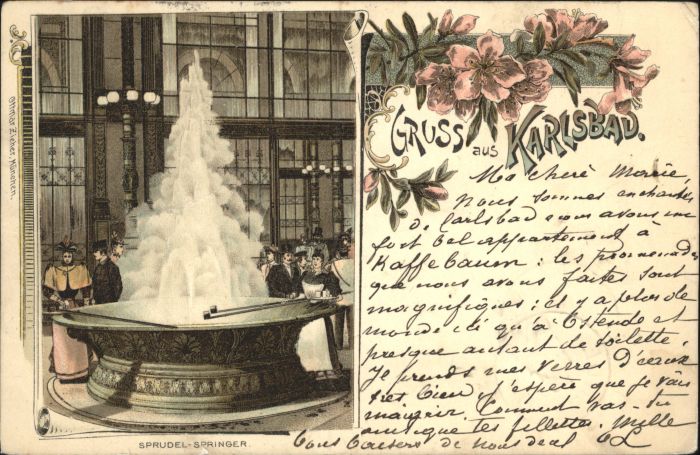 Ottmar Zieher, München.
GRUSS aus KARLSBAD.
Ma chère Marie,
nous sommes enchantés
de Carlsbad nous avons un
fort bel appartement à
Kaffebaum : les promenades
que nous avons faites sont
magnifiques : il y a plus de
monde ici qu'à Ostende et
presque autant de toilette.
Je prends mes verres d'eau
très bien j'espère que je vais
maigrir. Comment vas-tu
ainsi que tes fillettes. Mille
bons baisers de nous deux
SPRUDEL-SPRINGER.